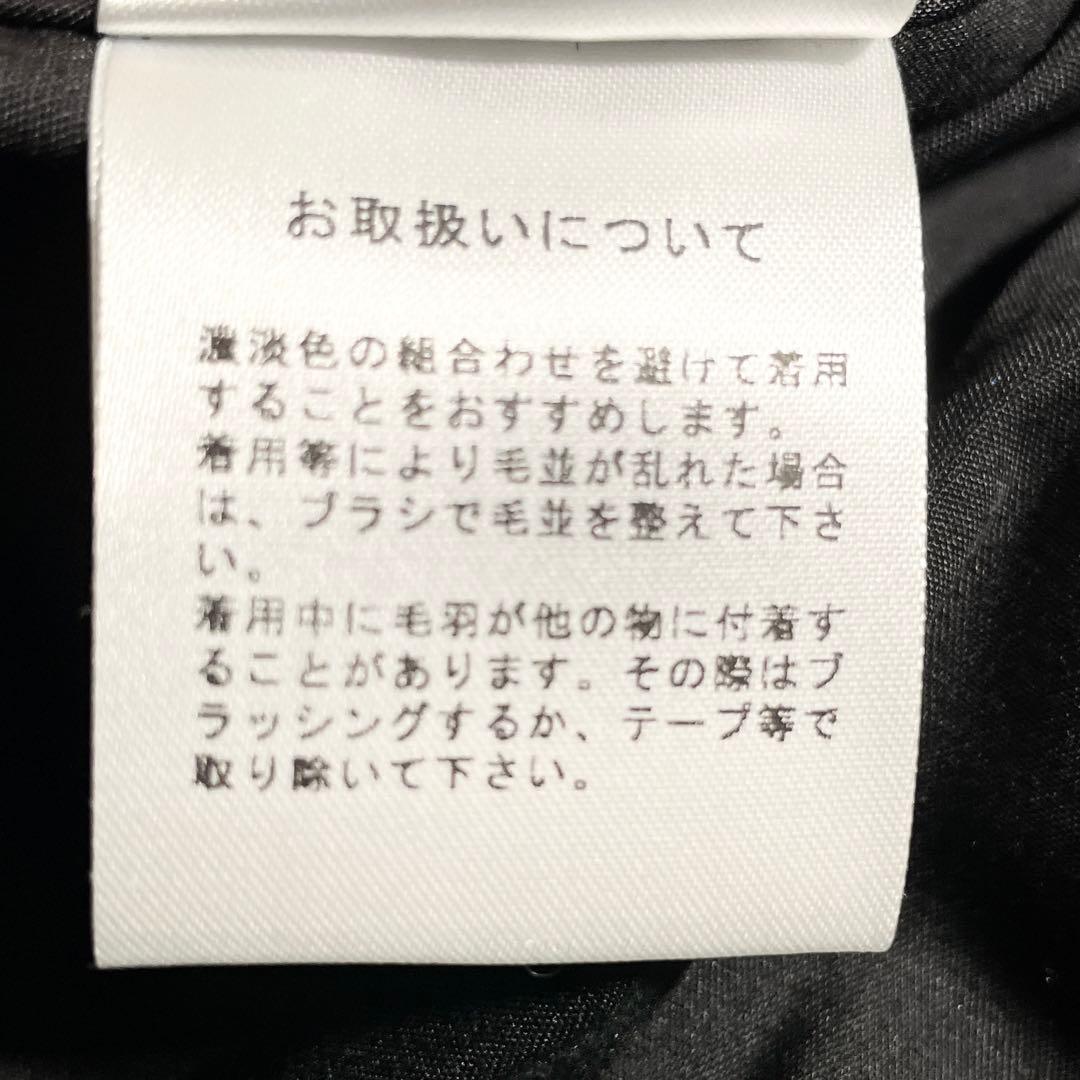 お取扱いについて
濃淡色の組合わせを避けて着用
することをおすすめします。
着用等により毛並が乱れた場合
は、ブラシで毛並を整えて下さ
い。
着用中に毛羽が他の物に付着す
ることがあります。その際はブ
ラッシングするか、テープ等で
取り除いて下さい。